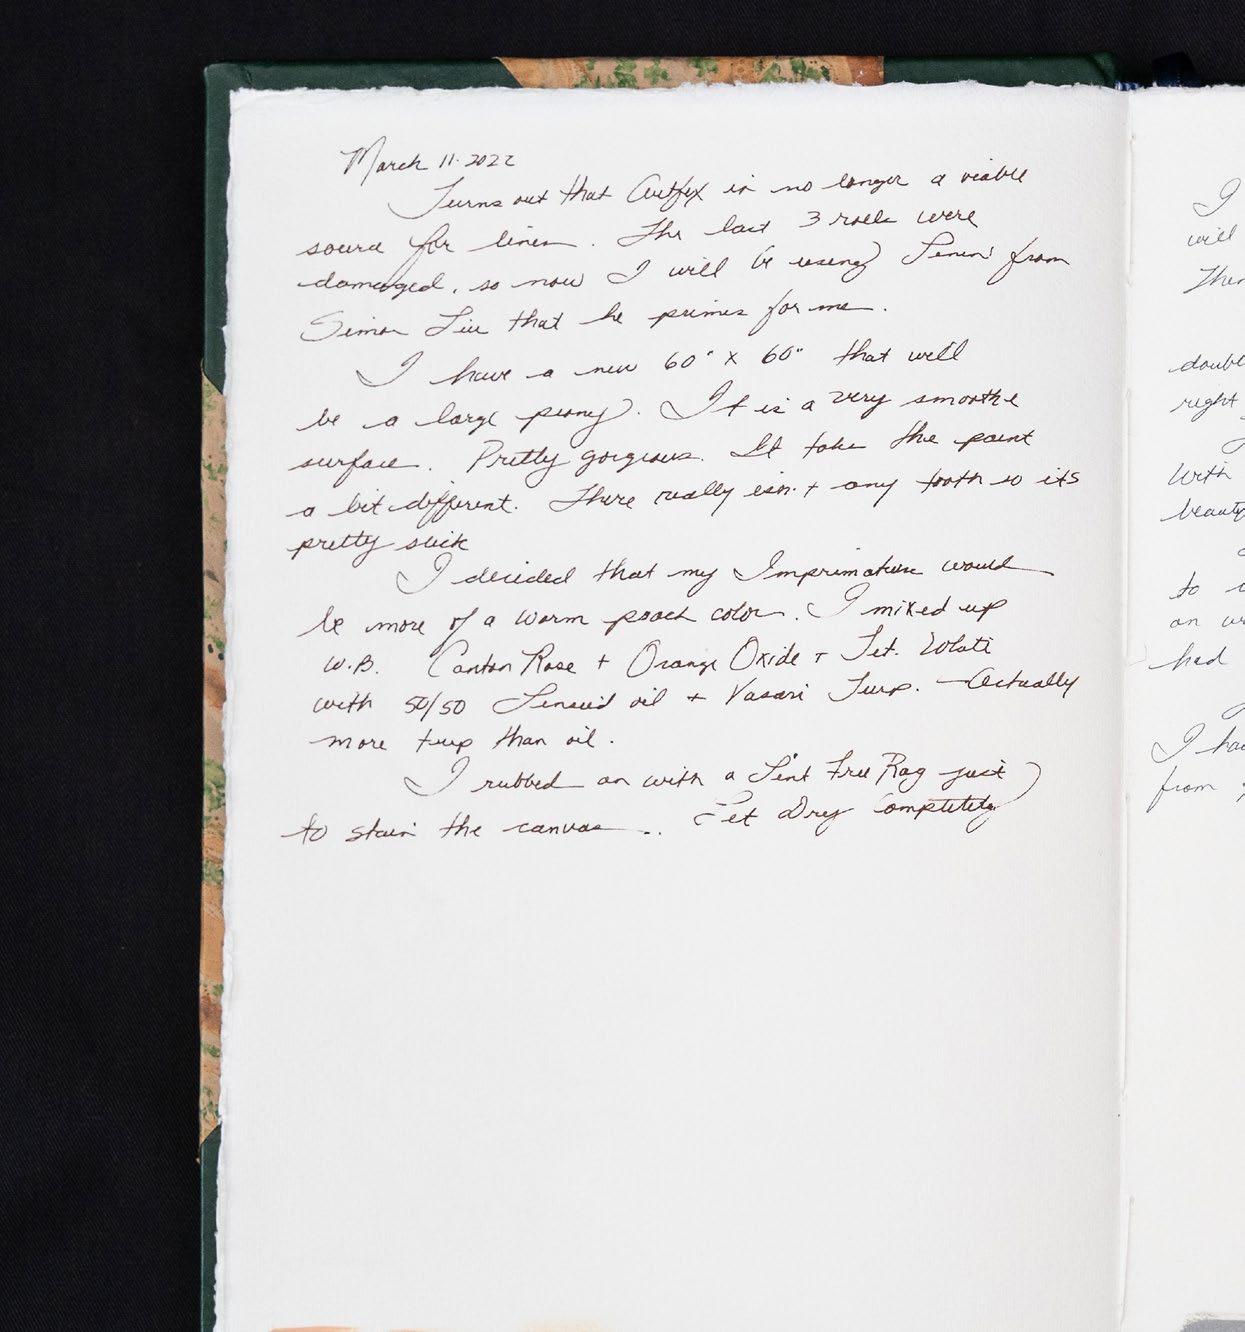 March 11. 2022
Turns out that Artfix is no longer a viable
source for linen. The last 3 rolls were
damaged, so now I will be using Linen from
Simon Liu that he primes for me.
I have a new 60" x 60" that will
be a large peony. It is a very smoothe
surface. Pretty gorgeous. It take the paint
a bit different. There really isn't any tooth so its
pretty slick
I decided that my Imprimature would
be more of a warm peach color. I mixed up
W.B. Canton Rose + Orange Oxide + Tit. White
with 50/50 Linseed oil + Vasari Turp. — Actually
more turp than oil.
I rubbed on with a Lint Free Rag just
to stain the canvas... Let Dry Completely
I
will
Then
double
right
With
beauty
to
an
had
I ha
from